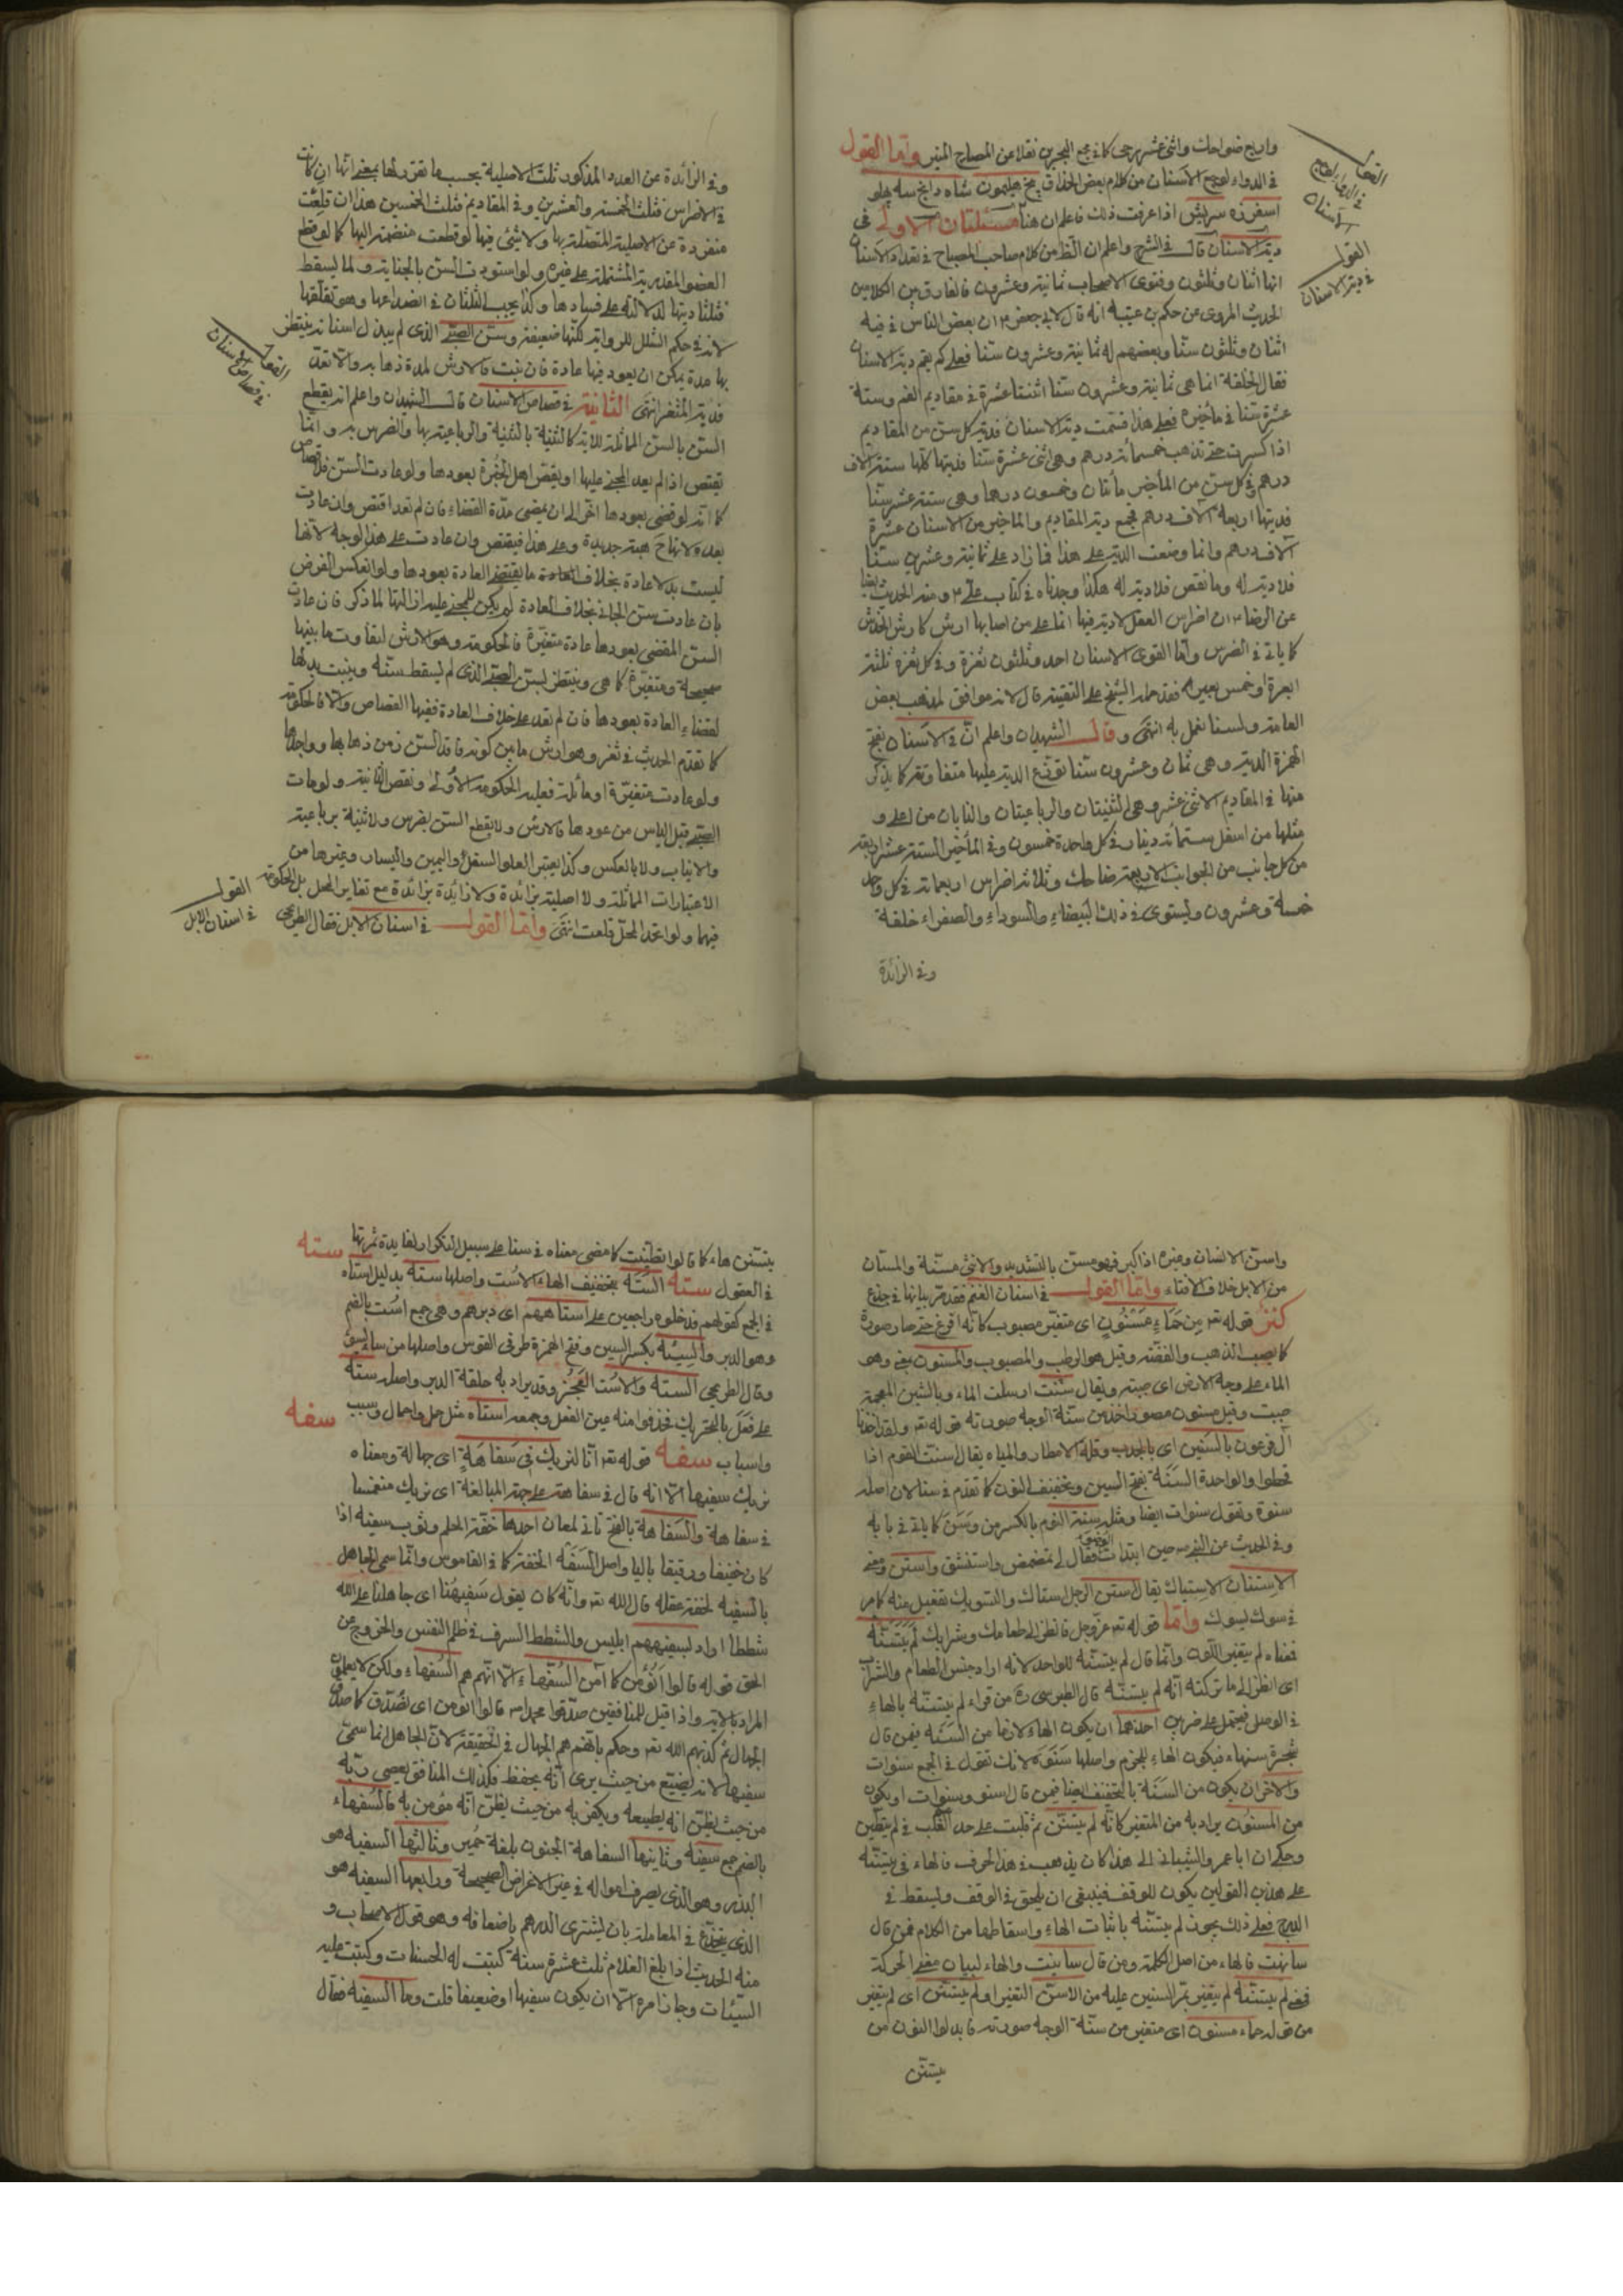 واربع ضواحك واثنى عشر رحى كما فى مجمع البحرين نقلا عن المصباح المنير واما القول
فى الدواء لوجع الاسنان من كلام بعض الحذاق
اذا عرفت ذلك فاعلم ان هنا مسئلتان الاولى فى
دية الاسنان قال فى الشرح واعلم ان الظ من كلام صاحب المصباح فى تعداد الاسنان
انها اثنان وثلثون وفتوى الاصحاب ثمانية وعشرون فالفارق بين الكلامين
الحديث المروى عن حكم بن عتيبه انه قال لابى جعفر ان بعض الناس فى فيه
اثنان وثلثون سنا وبعضهم له ثمانية وعشرون سنا فعلى كم يقسم دية الاسنان
فقال الخلقة انما هى ثمانية وعشرون سنا اثنتا عشرة فى مقاديم الفم وستة
عشرة سنا فى مآخيره فعلى هذا قسمت دية الاسنان فدية كل سن من المقاديم
اذا كسرت حتى تذهب خمسمائة درهم وهى اثنى عشرة سنا فديتها كلها ستة الاف
درهم وفى كل سن من المآخير مأتان وخمسون درهما وهى ستة عشر سنا
فديتها اربعة آلاف درهم فجمع دية المقاديم والمآخير من الاسنان عشرة
آلاف درهم وانما وضعت الدية على هذا فما زاد على ثمانية وعشرين سنا
فلا دية له وما نقص فلا دية له هكذا وجدناه فى كتاب على ومنه الحديث ايضا
عن الرضا ان اضراس العقل لا دية فيها انما على من اصابها ارش كارش الخدش
كما ياتى فى الضرس واما القوى الاسنان احد وثلثون ثغرة وفى كل ثغرة ثلثة
ابعرة وخمس بعير فقد حمله الشيخ على التقية قال لانه موافق لمذهب بعض
العامة ولسنا نعمل به انتهى وقال الشهيدان واعلم ان فى الاسنان بفتح
الهمزة الدية وهى ثمان وعشرون سنا توزع الدية عليها متفاوتة كما يذكر
منها فى المقاديم الاثنى عشر وهى الثنيتان والرباعيتان والنابان من اعلى و
مثلها من اسفل ستمائة دينار فى كل واحدة خمسون وفى المآخير الستة عشر اربعة
من كل جانب من الجوانب الاربعة ضاحك وثلاثة اضراس اربعمائة فى كل واحد
خمسة وعشرون ويستوى فى ذلك البيضاء والسوداء والصفراء خلقة
وفى الزائدة
القول
فى الدواء لوجع
الاسنان
القول
فى دية الاسنان
وفى الزائدة عن العدد المذكور ثلث الاصلية بحسب ما تقرر لها بمعنى انها ان كانت
فى الاضراس فثلث الخمسة والعشرين وفى المقاديم فثلث الخمسين هذا ان قلعت
منفردة عن الاصلية المتصلة بها ولا شئ فيها لو قطعت منضمة اليها كما لو قطع
العضو المقدر دية المشتملة على غيره ولو اسودت السن بالجناية ولما يسقط
فثلثا ديتها لدلالته على فسادها وكذا يجب الثلثان فى انصداعها وهو تقلقها
لانه فى حكم الشلل للرواية لكنها ضعيفة وسن الصبى الذى لم يبدل اسنانه ينتظر
بها مدة يمكن ان يعود فيها عادة فان نبت فالارش لمدة ذهابه والا تعد
فدية المثغر انتهى الثانية فى قصاص الاسنان قال الشهيدان واعلم انه يقطع
السن بالسن المماثلة للاية كالثنية بالثنية والرباعية بها والضرس به وانما
تقتص اذا لم يعد المجنى عليها او يقض اهل الخبرة بعودها ولو عادت السن فلا قصاص
كما انه لو قضى بعودها اخر الى ان يمضى مدة القضاء فان لم تعد اقتص وان عادت
بعده لانها ح هبة جديدة وعلى هذا فيقتص وان عادت على هذا الوجه لانها
ليست بدلا عادة بخلاف ما يقتضى العادة بعودها ولو انعكس الفرض
بان عادت سن الجانى بخلاف العادة لم يكن للمجنى عليه ازالتها لما ذكر فان عادت
السن المقضى بعودها عادة متغيرة فالحكومة وهو الارش لتفاوت ما بينها
صحيحة ومتغيرة كما هى وينتظر بسن الصبى الذى لم يسقط سنه وينبت بدلها
لقضاء العادة بعودها فان لم تعد على خلاف العادة ففيها القصاص والا فالحكومة
كما تقدم الحديث فى ثغر وهو ارش ما بين كونه فاقد السن زمن ذهابها وواجدها
ولو عادت متغيرة او مائلة فعليه الحكومة الاولى ونقص الثانية ولو مات
الصبى قبل الياس من عودها فالارش ولا يقطع السن بضرس ولا ثنية برباعية
والانياب ولا بالعكس وكذا يعتبر العلو والسفل واليمين واليسار وغيرها من
الاعتبارات المماثلة ولا اصلية بزائدة ولا زائدة بزائدة مع تغاير المحل بل الحكومة
فيهما ولو اتحد المحل قلعت انتهى واما القول فى اسنان الابل فقال الطريحى
القول
فى قصاص الاسنان
القول
فى اسنان الابل
واسن الانسان وغيره اذا كبر فهو مسن بالتشديد والانثى مسنة والمسان
من الابل خلاف الافتاء واما القول فى اسنان الغنم فقد مر بيانها فى جذع
قوله تعـ من حماء مسنون اى متغير مصبوب كانه افرغ حتى صار صورة
كما يصب الذهب والفضة وقيل هو الرطب والمصبوب والمسنون بمعنى وهو
الماء على وجه الارض اى صبته ويقال سننت ارسلت الماء وبالشين المعجمة
صببت وقيل مسنون مصور اخذ من سنة الوجه صورته قوله تعـ ولقد اخذنا
آل فرعون بالسنين اى بالجدب وقلة الامطار والمياه يقال سنت القوم اذا
قحطوا والواحدة السنة بفتح السين وتخفيف النون كما تقدم فى سنا لان اصله
سنوة وتقول سنوات ايضا ومثله سنة النوم بالكسر من وسن كما ياتى فى بابه
وفى الحديث عن النبى حين ابتدأت فقال لى تمضمض واستنشق واستن ومعنى
الاستنان الاستياك يقال استن الرجل استاك والتسويك تفعيل منه كما مر
فى سوك يسوك واما قوله تعـ عز وجل فانظر الى طعامك وشرابك لم يتسنه
فمعناه لم يتغير اللون وانما قال لم يتسنه للواحد لانه اراد جنس الطعام والشراب
اى انظر الى ما تركته انه لم يتسنه قال الطبرسى ره من قراء لم يتسنه بالهاء
فى الوصل فيحتمل على ضربين احدهما ان يكون الهاء لاما من السنه فيمن قال
شجرة سنهاء فيكون الهاء للجزم واصلها سنوة لانك تقول فى الجمع سنوات
والاخر ان يكون من السنة بالتخفيف ايضا فيمن قال اسنو وسنوات او يكون
من المسنون يراد به من المتغير كانه لم يتسنن ثم قلبت على حد القلب فى لم يتظنن
وحكى ان ابا عمرو الشيبانى الى هذا كان يذهب فى هذا الحرف فالهاء فى يتسنه
على هذين القولين يكون للوقف فينبغى ان يلحق فى الوقف ويسقط فى
الدرج فعلى ذلك يجوز لم يتسنه باثبات الهاء واسقاطها من الكلام فمن قال
سانهت فالهاء من اصل الكلمة ومن قال سانيت والهاء لبيان معنى الحركة
فمعنى لم يتسنه لم يتغير بمر السنين عليه من الاسن التغير او لم يتسنن اى لم يتغير
من قوله حماء مسنون اى متغير من سنة الوجه صورته فابدلوا النون من
يتسنن
يتسنن هاء كما قالوا تظنيت كما مضى معناه فى سنا على سبيل التكرار لفايدة ثمرتها
فى العقول سته السته بتخفيف الهاء الاست واصلها سته بدليل استاه
فى الجمع كقولهم فدخلوه راجعين على استاههم اى دبرهم وهى جمع است بالضم
وهو الدبر والسيئه بكسر السين وفتح الهمزة طرفى القوس واصلها من ساء يسوء
وقال الطريحى السته والاست العجز وقد يراد به حلقة الدبر واصله سته
على فعل بالتحريك فحذفوا منه عين الفعل وجمعه استاه مثل جمل واجمال وسبب
واسباب سفه قوله تعـ انا لنريك فى سفاهة اى جهالة ومعناه
نريك سفيها الا انه قال فى سفاهة على جهة المبالغة اى نريك منغمسا
فى سفاهة والسفاهة بالفتح تاتى لمعان احدها خفة الحلم وثوب سفيه اذا
كان خفيفا ورقيقا باليا واصل السفه الخفة كما فى القاموس وانما سمى الجاهل
بالسفيه لخفة عقله قال الله تعـ وانه كان يقول سفيهنا اى جاهلنا على الله
شططا اراد بسفيههم ابليس والشطط السرف فى ظلم النفس والخروج عن
الحق قوله قالوا انؤمن كما آمن السفهاء الا انهم هم السفهاء ولكن لا يعلمون
المراد بالاية واذا قيل للمنافقين صدقوا محمدا قالوا انؤمن اى نصدق كما صدق
الجهال ثم كذبهم الله تعـ وحكم بانهم هم الجهال فى الحقيقة لان الجاهل انما سمى
سفيها لانه يضيع من حيث يرى انه يحفظ فكذلك المنافق يعصى ربه
من حيث يظن انه يطيعه ويكفر به من حيث يظن انه مؤمن به فالسفهاء
بالضم جمع سفيه وثاينها السفاهة الجنون بلغة حمير وثالثها السفيه هو
المبذر وهو الذى يصرف امواله فى غير الاغراض الصحيحة ورابعها السفيه هو
الذى ينخدع فى المعاملة بان يشترى الدرهم باضعافه وهو قول الاصحاب و
منه الحديث اذا بلغ الغلام ثلث عشرة سنة كتبت له الحسنات وكتبت عليه
السيئات وجاز امره الا ان يكون سفيها او ضعيفا قلت وما السفيه فقال
سته
سفه